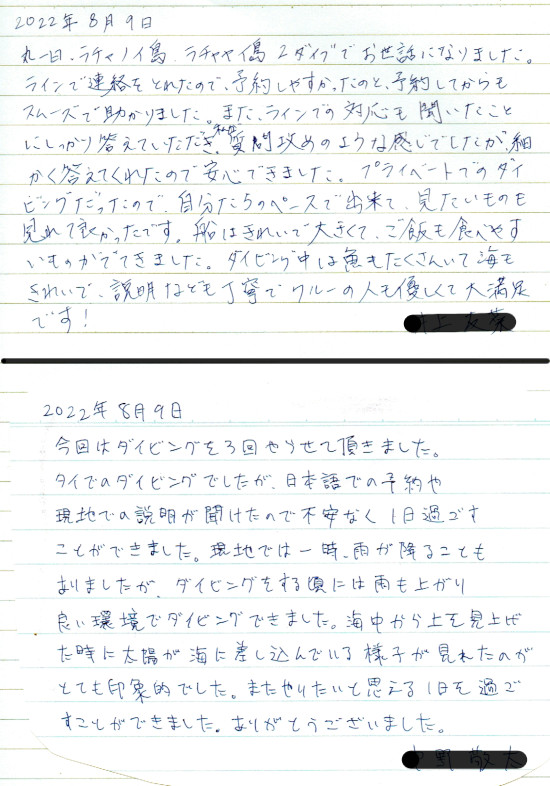 2022年8月9日
丸一日、ラチャノイ島、ラチャヤイ島2ダイブでお世話になりました。
ラインで連絡をとれたので、予約しやすかったのと、予約してからも
スムーズで助かりました。また、ラインでの対応も聞いたこと
にしっかり答えていただき、質問攻めのような感じでしたが、細
かく答えてくれたので安心できました。プライベートでのダイ
ビングだったので、自分たちのペースで出来て、見たいものも
見れて良かったです。船はきれいで大きくて、ご飯も食べやす
いものがでてきました。ダイビング中は魚もたくさんいて海も
きれいで、説明なども丁寧でクルーの人も優しくて大満足
です!
2022年8月9日
今回はダイビングを3回やらせて頂きました。
タイでのダイビングでしたが、日本語での予約や
現地での説明が聞けたので不安なく1日過ごす
ことができました。現地では一時、雨が降ることも
ありましたが、ダイビングをする頃には雨も上がり
良い環境でダイビングできました。海中から上を見上げ
た時に太陽が海に差し込んでいる様子が見れたのが
とても印象的でした。またやりたいと思える1日を過ご
すことができました。ありがとうございました。